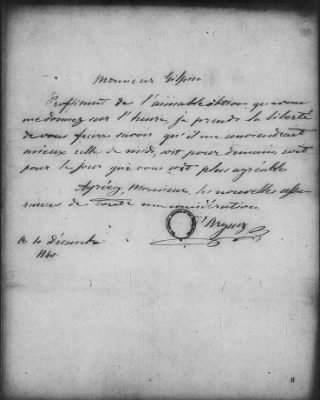 Monsieur Gilpin
Profitant de l'aimable que vous
me donnez sur l'heure, je prends la liberté
de vous faire savoir qu'il me conviendrait
mieux celle de midi, soit pour demain, soit
pour le jour que vous soit plus agréable
Agréez, Monsieur, les nouvelles assu-
rances de toute ma considération
Ce 10 décembre
1840.